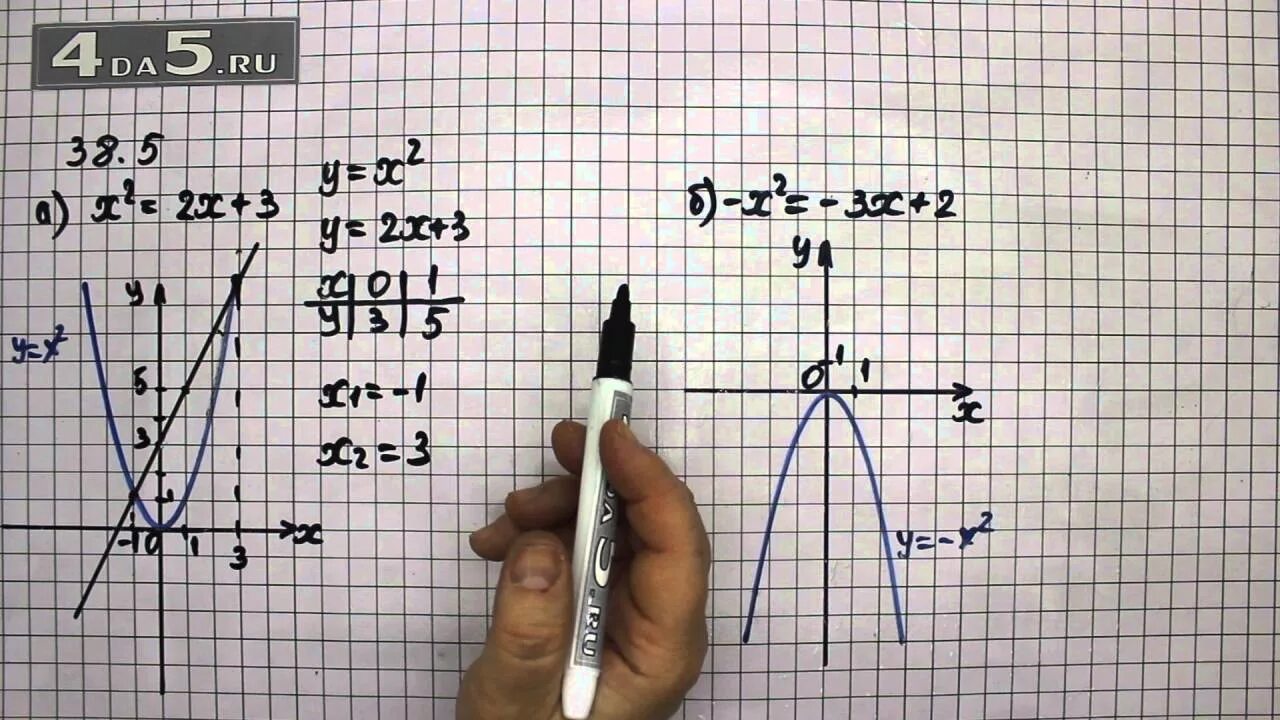 4DA5.RU
38.5
а) x² = 2x + 3
y = x²
y = 2x+3
x | 0 | 1
y | 3 | 5
x₁ = -1
x₂ = 3
y
y=x²
5
3
1
-1 0 1 3
x
б) -x² = - 3x + 2
y
1
0 1
x
y = -x²
DA 5.RU